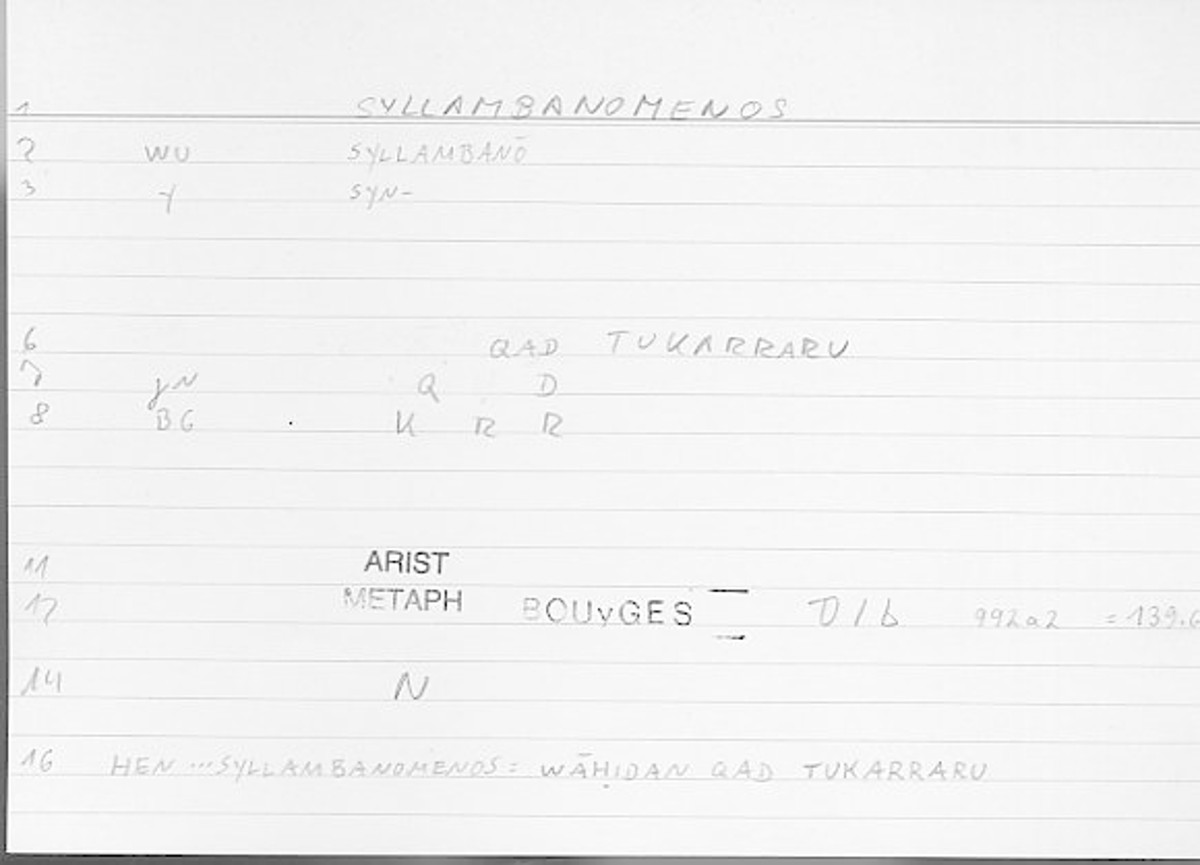 1 SYLLAMBANOMENOS
2 WU SYLLAMBANŌ
3 Y SYN-
6 QAD TUKARRARU
7 JN Q D
8 BG K R R
11 ARIST
12 METAPH BOUyGES D/b 992a2 = 139.6
14 N
16 HEN ...SYLLAMBANOMENOS = WĀḤIDAN QAD TUKARRARU